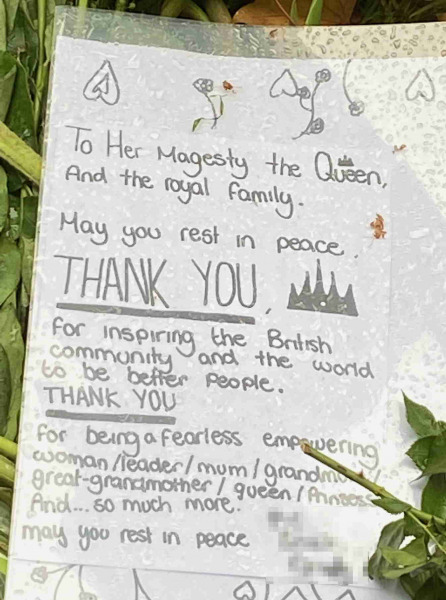 To Her Magesty the Queen,
And the royal family.
May you rest in peace.
THANK YOU,
for inspiring the British
community and the world
to be better people.
THANK YOU
For being a fearless empowering
woman/leader/mum/grandmu
great-grandmother/queen/Princess
And... so much more.
may you rest in peace